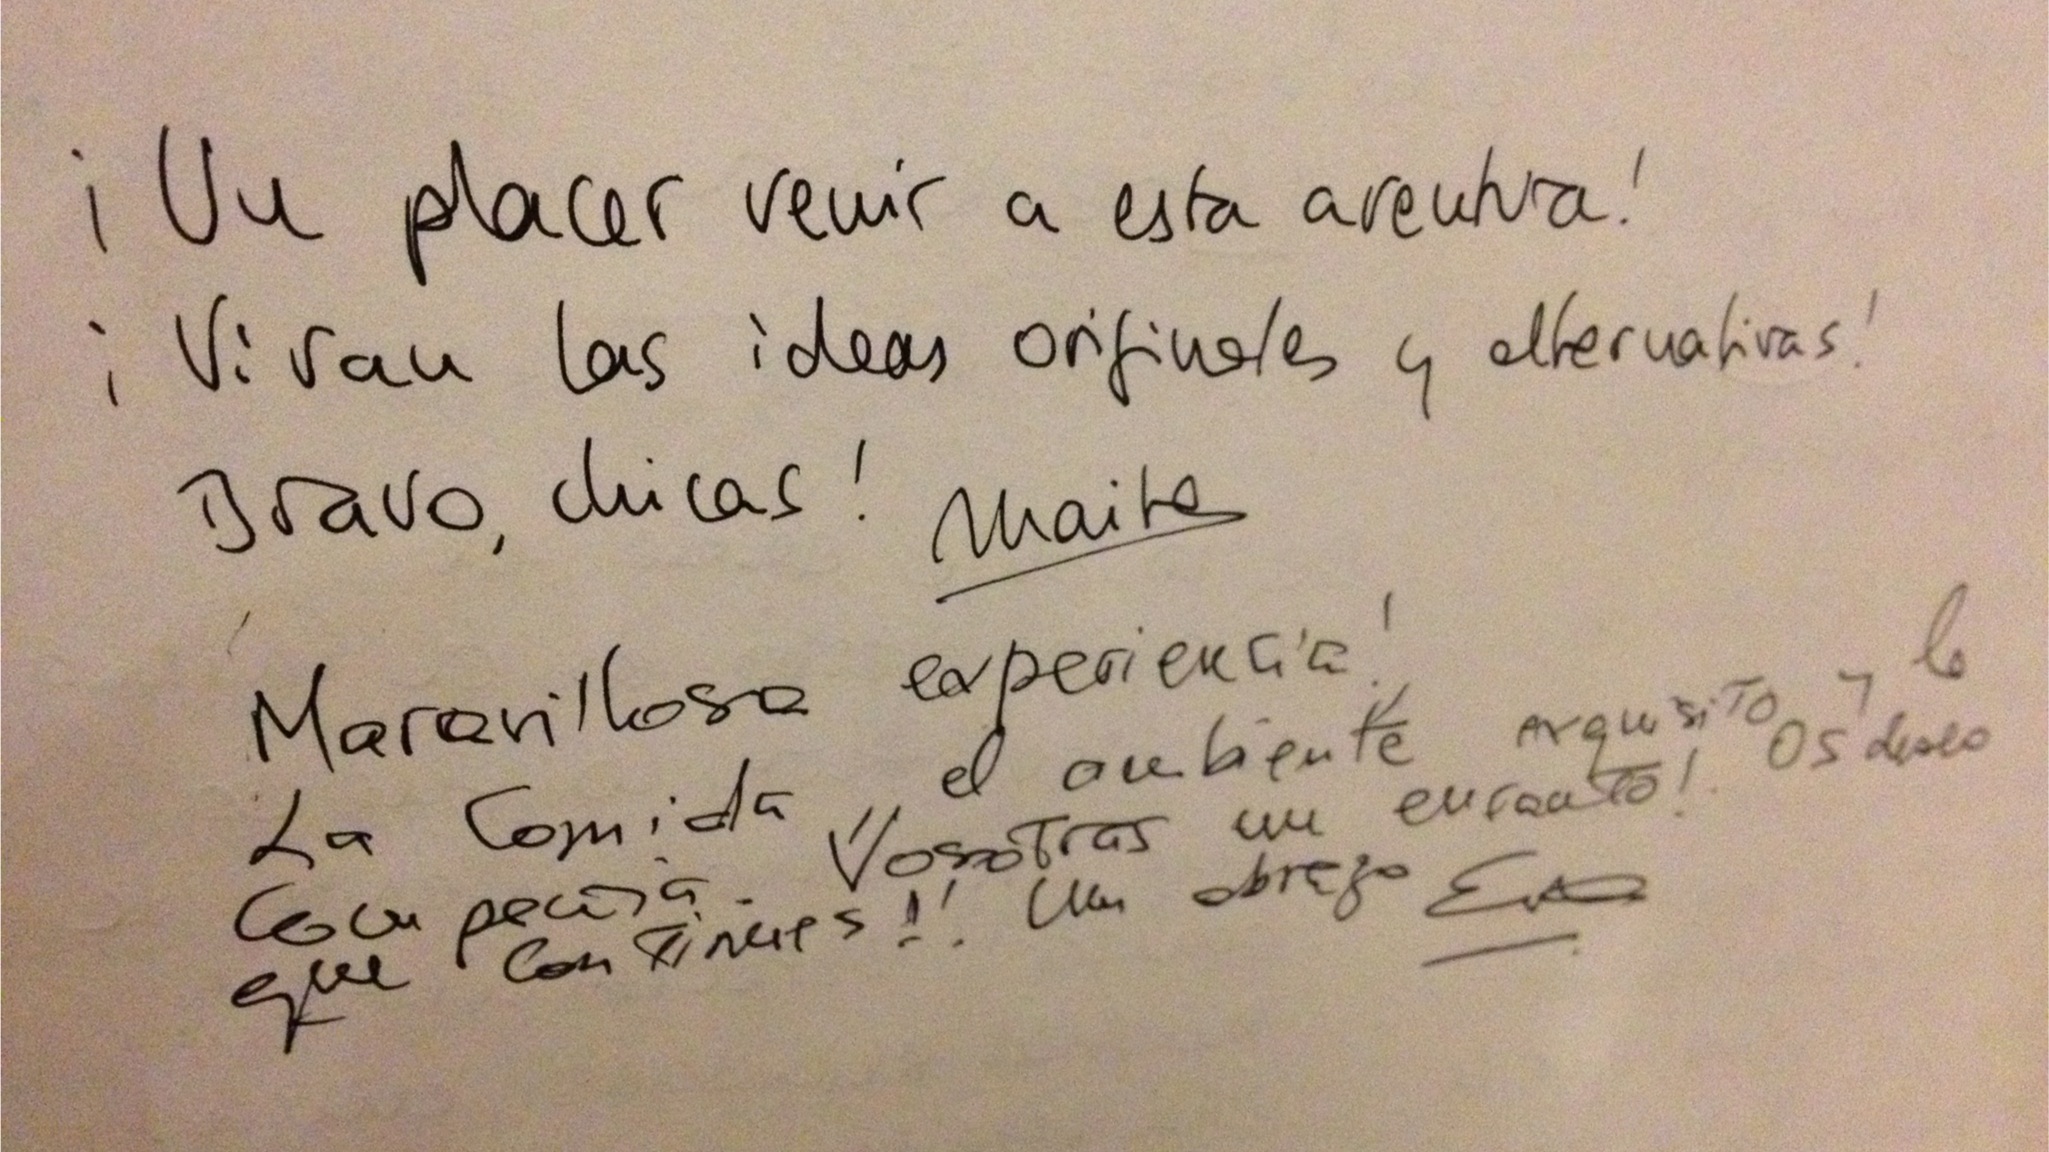 ¡Un placer venir a esta aventura!
¡Vivan las ideas originales y alternativas!
Bravo, chicas! Maite
Maravillosa experiencia!
La comida, el ambiente exquisito y la
compañía. Vosotras un encanto! Os deseo
que continues!! Un abrazo Eva